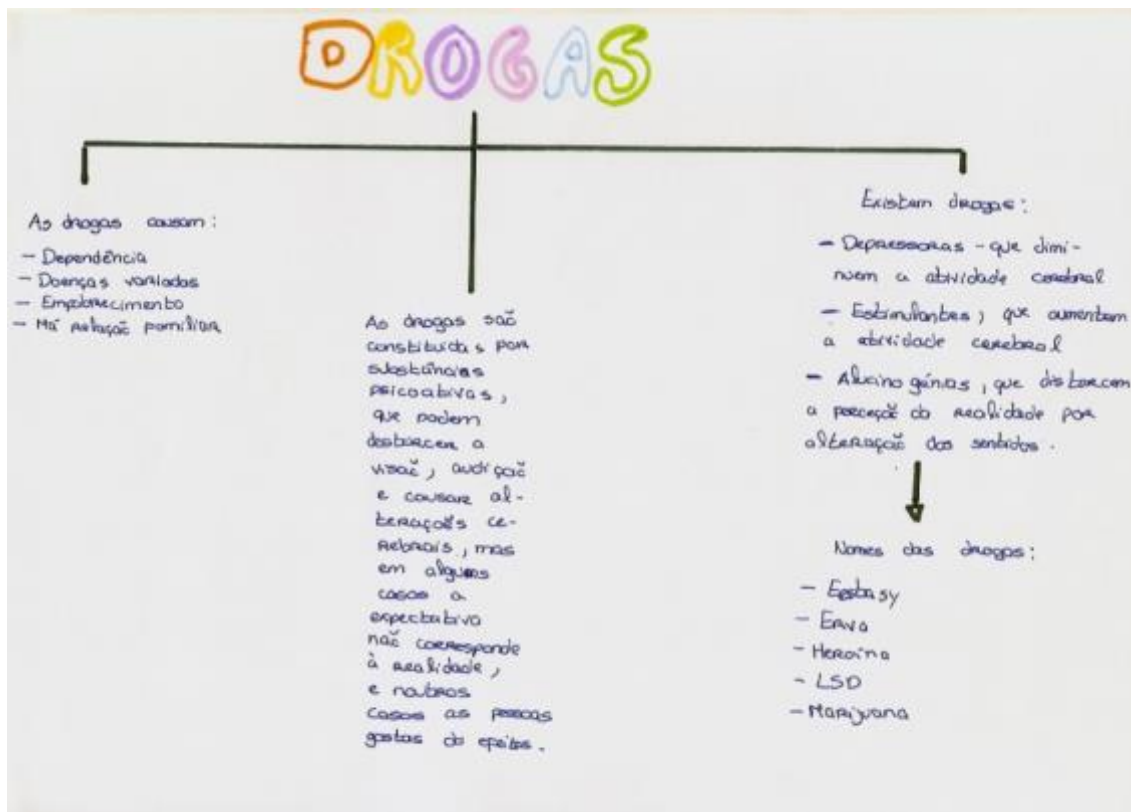 DROGAS
As drogas causam:
- Dependência
- Doenças variadas
- Empobrecimento
- Má relação familiar
As drogas são
constituídas por
substâncias
psicoativas,
que podem
destorcer a
visão, audição
e causar al-
terações ce-
rebrais, mas
em alguns
casos a
expectativa
não corresponde
à realidade,
e noutros
casos as pessoas
gostas do efeitos.
Existem drogas:
- Depressoras - que dimi-
nuem a atividade cerebral
- Estimulantes, que aumentam
a atividade cerebral
- Alucinogénias, que distorcem
a perceção da realidade por
alteração dos sentidos.
Nomes das drogas:
- Erva
- Heroína
- LSD
- Marijuana